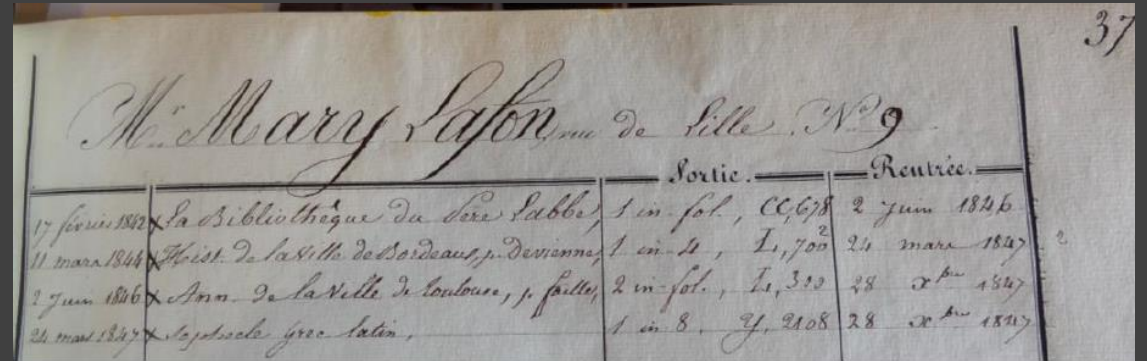 37
Mr. Mary Lafon, rue de Lille, No 9
Sortie. Rentrée.
17 février 1842 x La Bibliothèque du Père Labbe, 1 in-fol., CC, 678 2 Juin 1846
11 mars 1844 x Hist. de la Ville de Bordeaux, p. Devienne, 1 in 4, L, 700² 24 mars 1847
2 Juin 1846 x Ann. de la Ville de Toulouse, p. faille, 2 in-fol., L, 300 28 Xbre 1847
24 mars 1847 x Sophocle grec latin, 1 in 8, Y, 2108 28 Xbre 1847